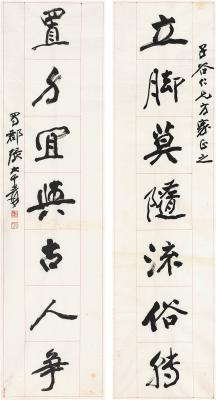 子谷仁兄方家正之
立脚莫隨流俗轉
置身宜與古人爭
蜀郡張大千爰